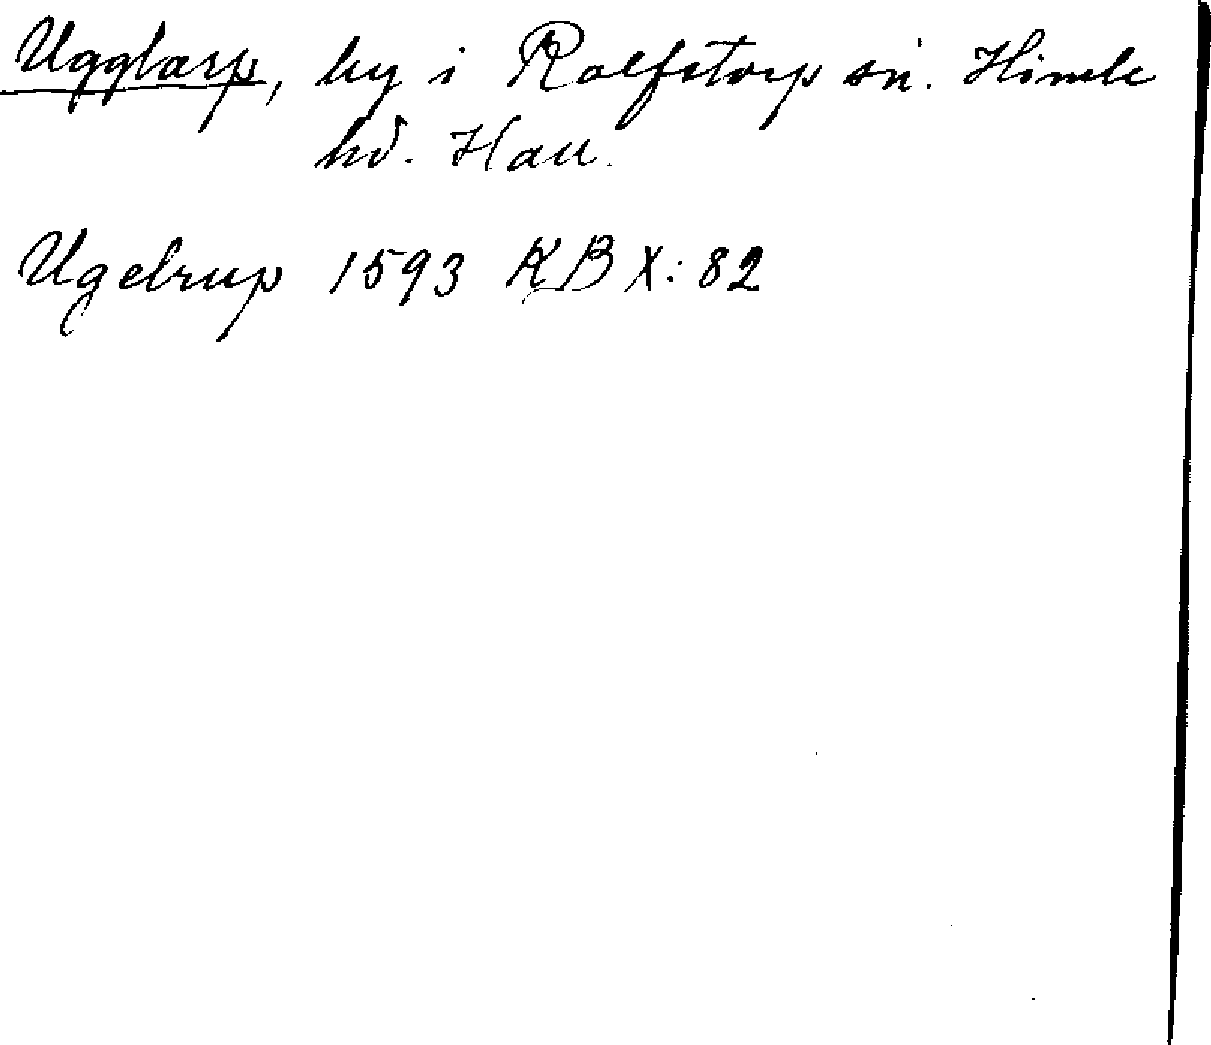 Ugglarp, by i Rolfstorp sn. Himle
hd. Hall.
Ugelrup 1593 KB X: 82